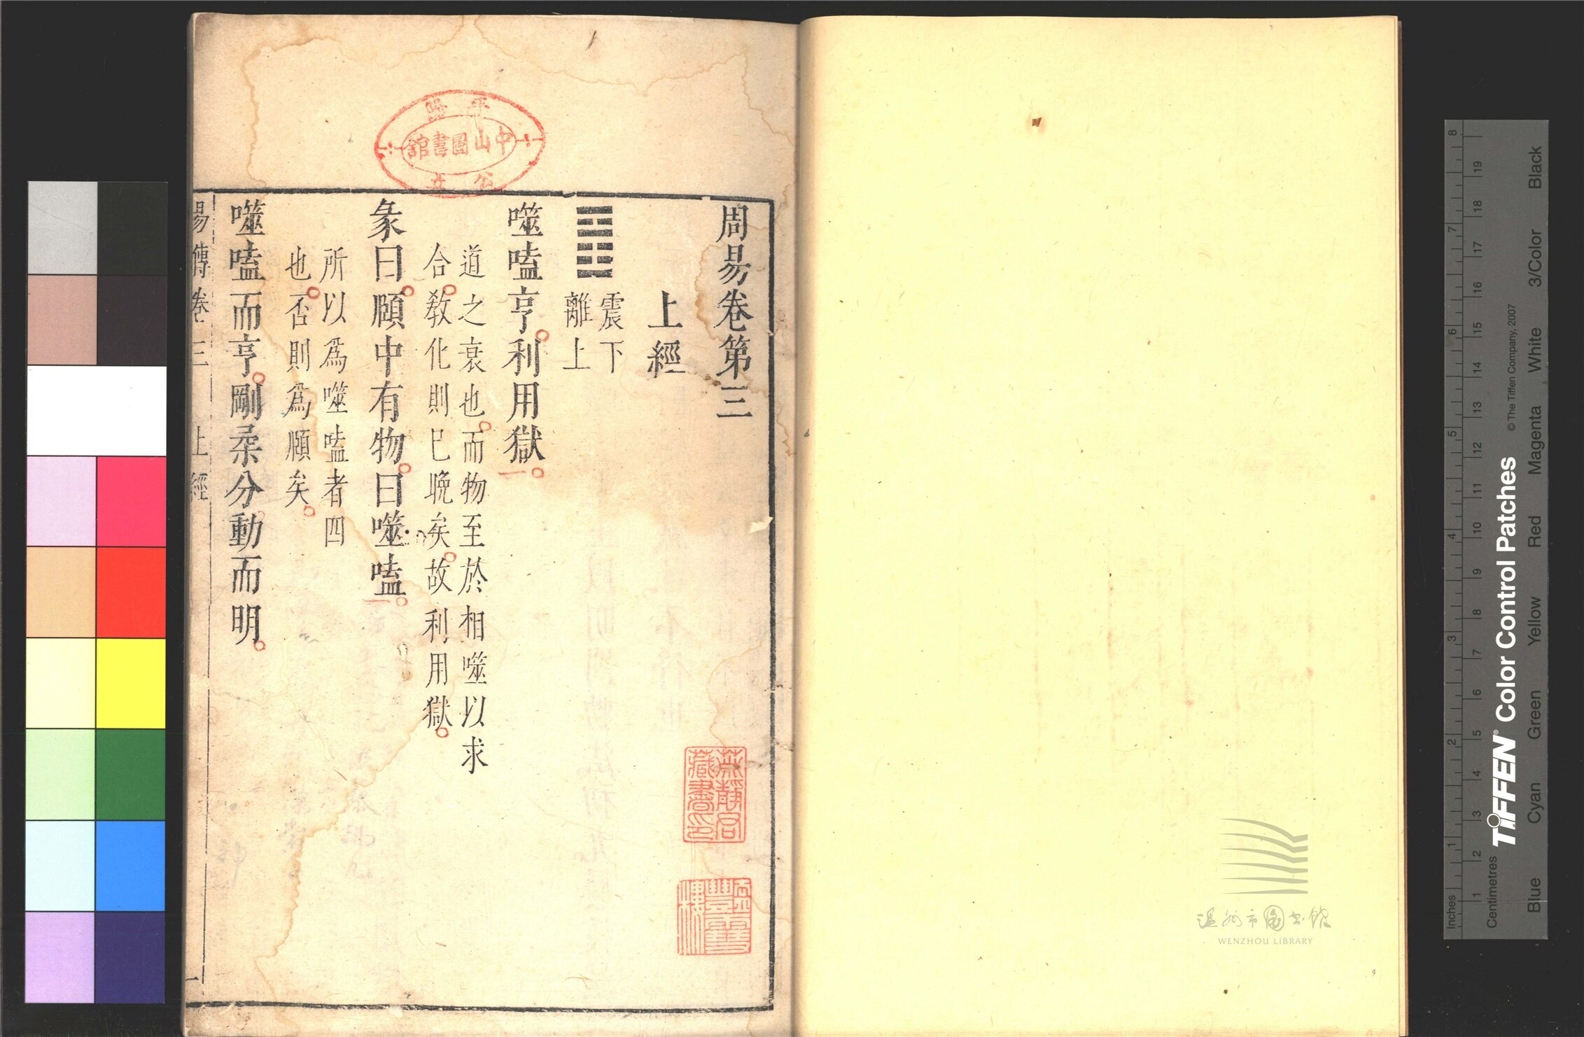 周易卷第三
上經
震下
離上
噬嗑亨利用獄
道之衰也而物至於相噬以求
合教化則已晚矣故利用獄
彖曰頤中有物曰噬嗑
所以為噬嗑者四
也否則為頤矣
噬嗑而亨剛柔分動而明
易傳卷三 上經 一
平陽
中山圖書館
公立
藏書印
溫州市圖書館
WENZHOU LIBRARY
TIFFEN® Color Control Patches
© The Tiffen Company, 2007
Inches 1 2 3 4 5 6 7 8
Centimetres 1 2 3 4 5 6 7 8 9 10 11 12 13 14 15 16 17 18 19
Blue Cyan Green Yellow Red Magenta White 3/Color Black